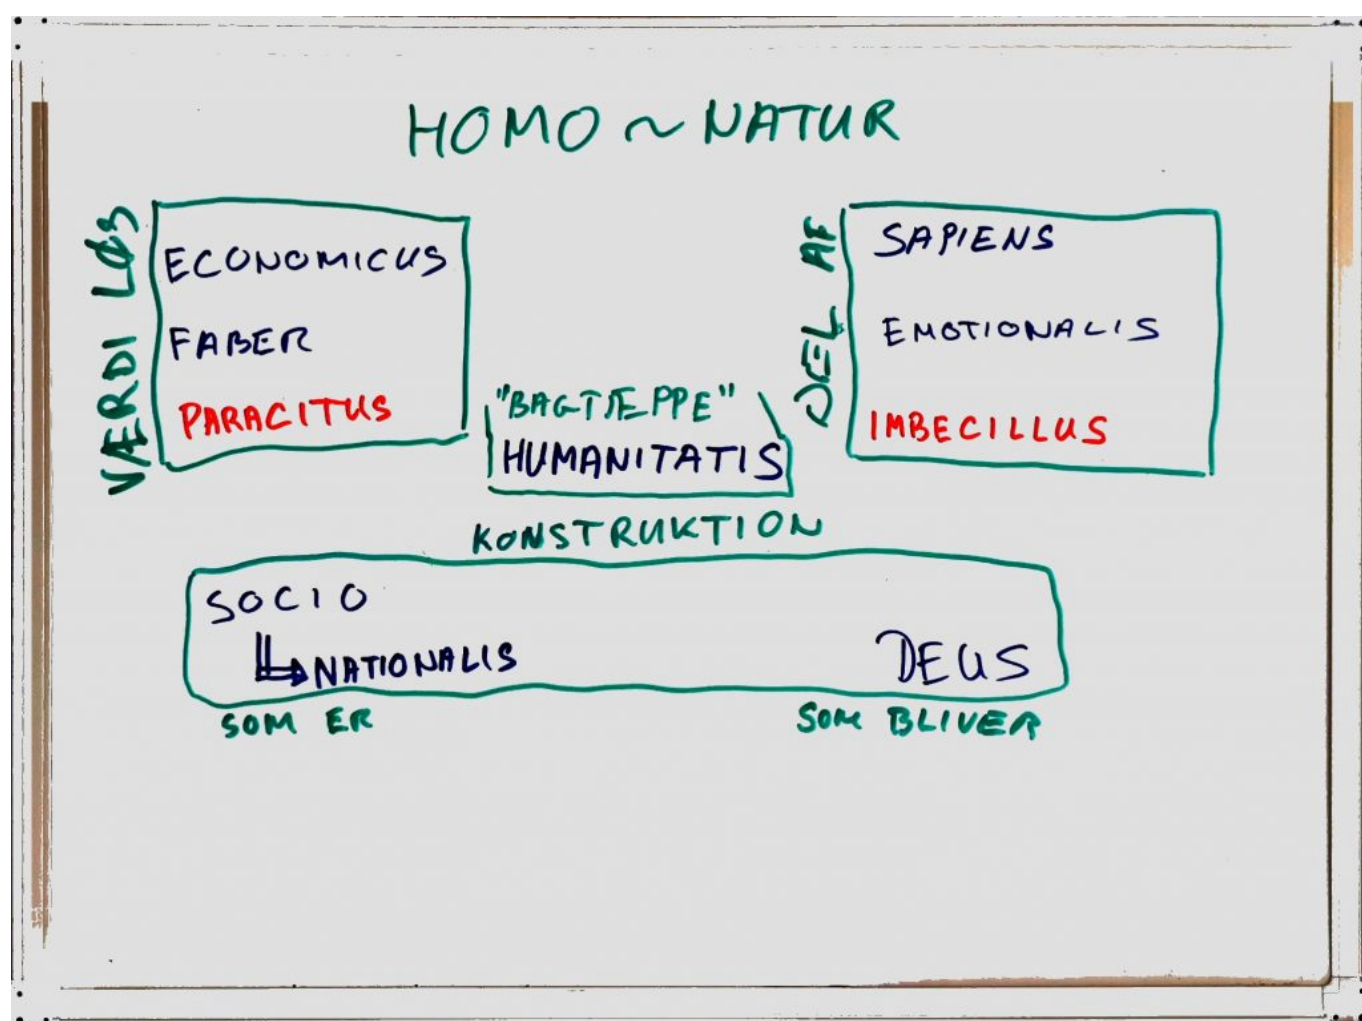 HOMO ~ NATUR
VÆRDI LØS
ECONOMICUS
FABER
PARACITUS
"BAGTÆPPE"
HUMANITATIS
DEL AF
SAPIENS
EMOTIONALIS
IMBECILLUS
KONSTRUKTION
SOCIO
NATIONALIS
DEUS
SOM ER
SOM BLIVER